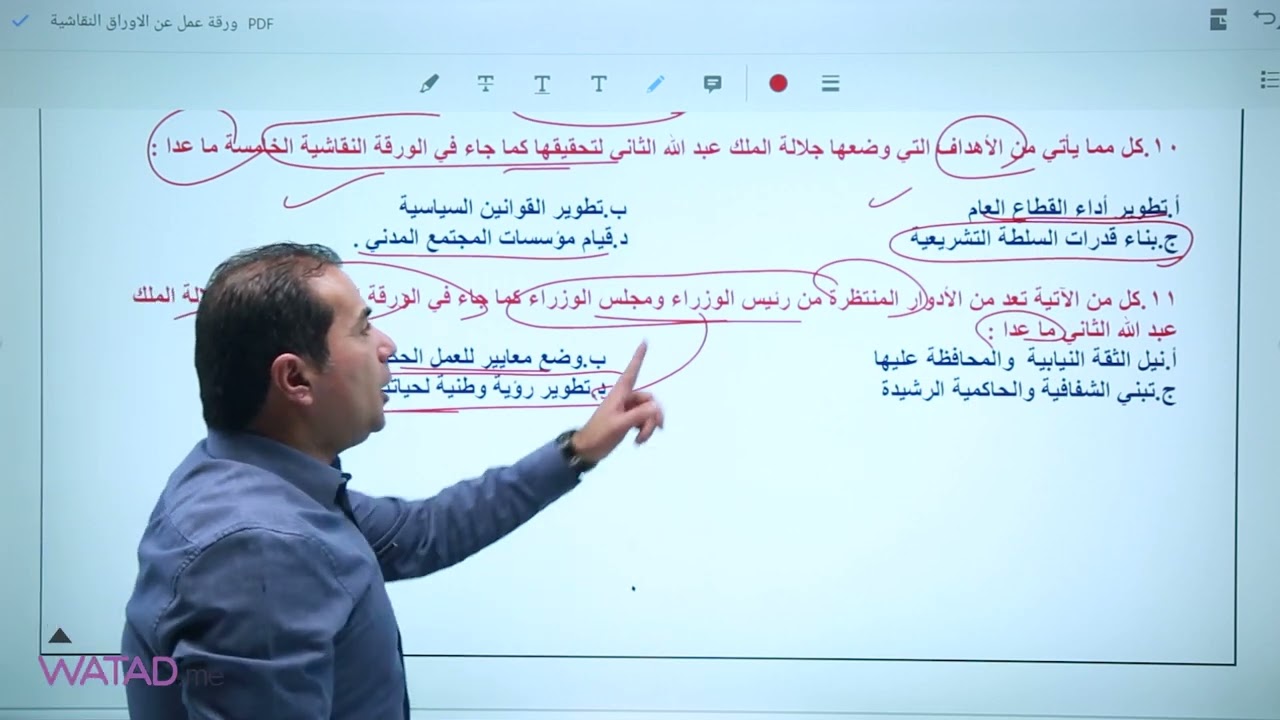 ورقة عمل عن الاوراق النقاشية PDF
١٠.كل مما يأتي من الأهداف التي وضعها جلالة الملك عبد الله الثاني لتحقيقها كما جاء في الورقة النقاشية الخامسة ما عدا :
أ.تطوير أداء القطاع العام
ب.تطوير القوانين السياسية
ج.بناء قدرات السلطة التشريعية
د.قيام مؤسسات المجتمع المدني .
١١.كل من الآتية تعد من الأدوار المنتظرة من رئيس الوزراء ومجلس الوزراء كما جاء في الورقة الملك
عبد الله الثاني ما عدا :
أ.نيل الثقة النيابية والمحافظة عليها
ب.وضع معايير للعمل
ج.تبني الشفافية والحاكمية الرشيدة
د.تطوير رؤية وطنية
WATAD.me